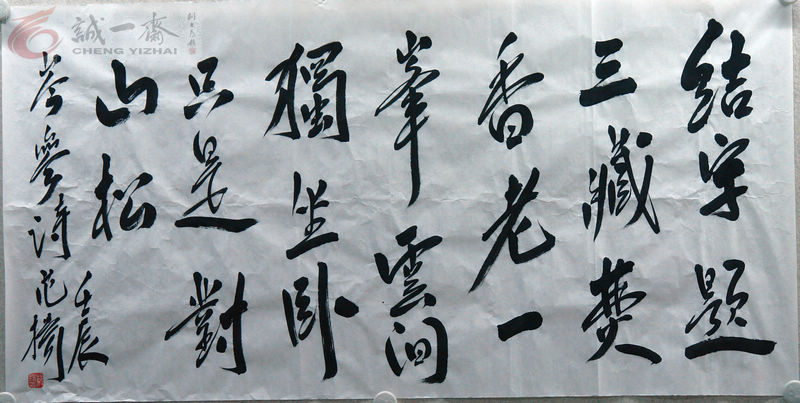 結宇題
三藏焚
香老一
峯雲間
獨坐卧
只是對
山松
岑參詩
壬辰
誠一齋
CHENG YIZHAI